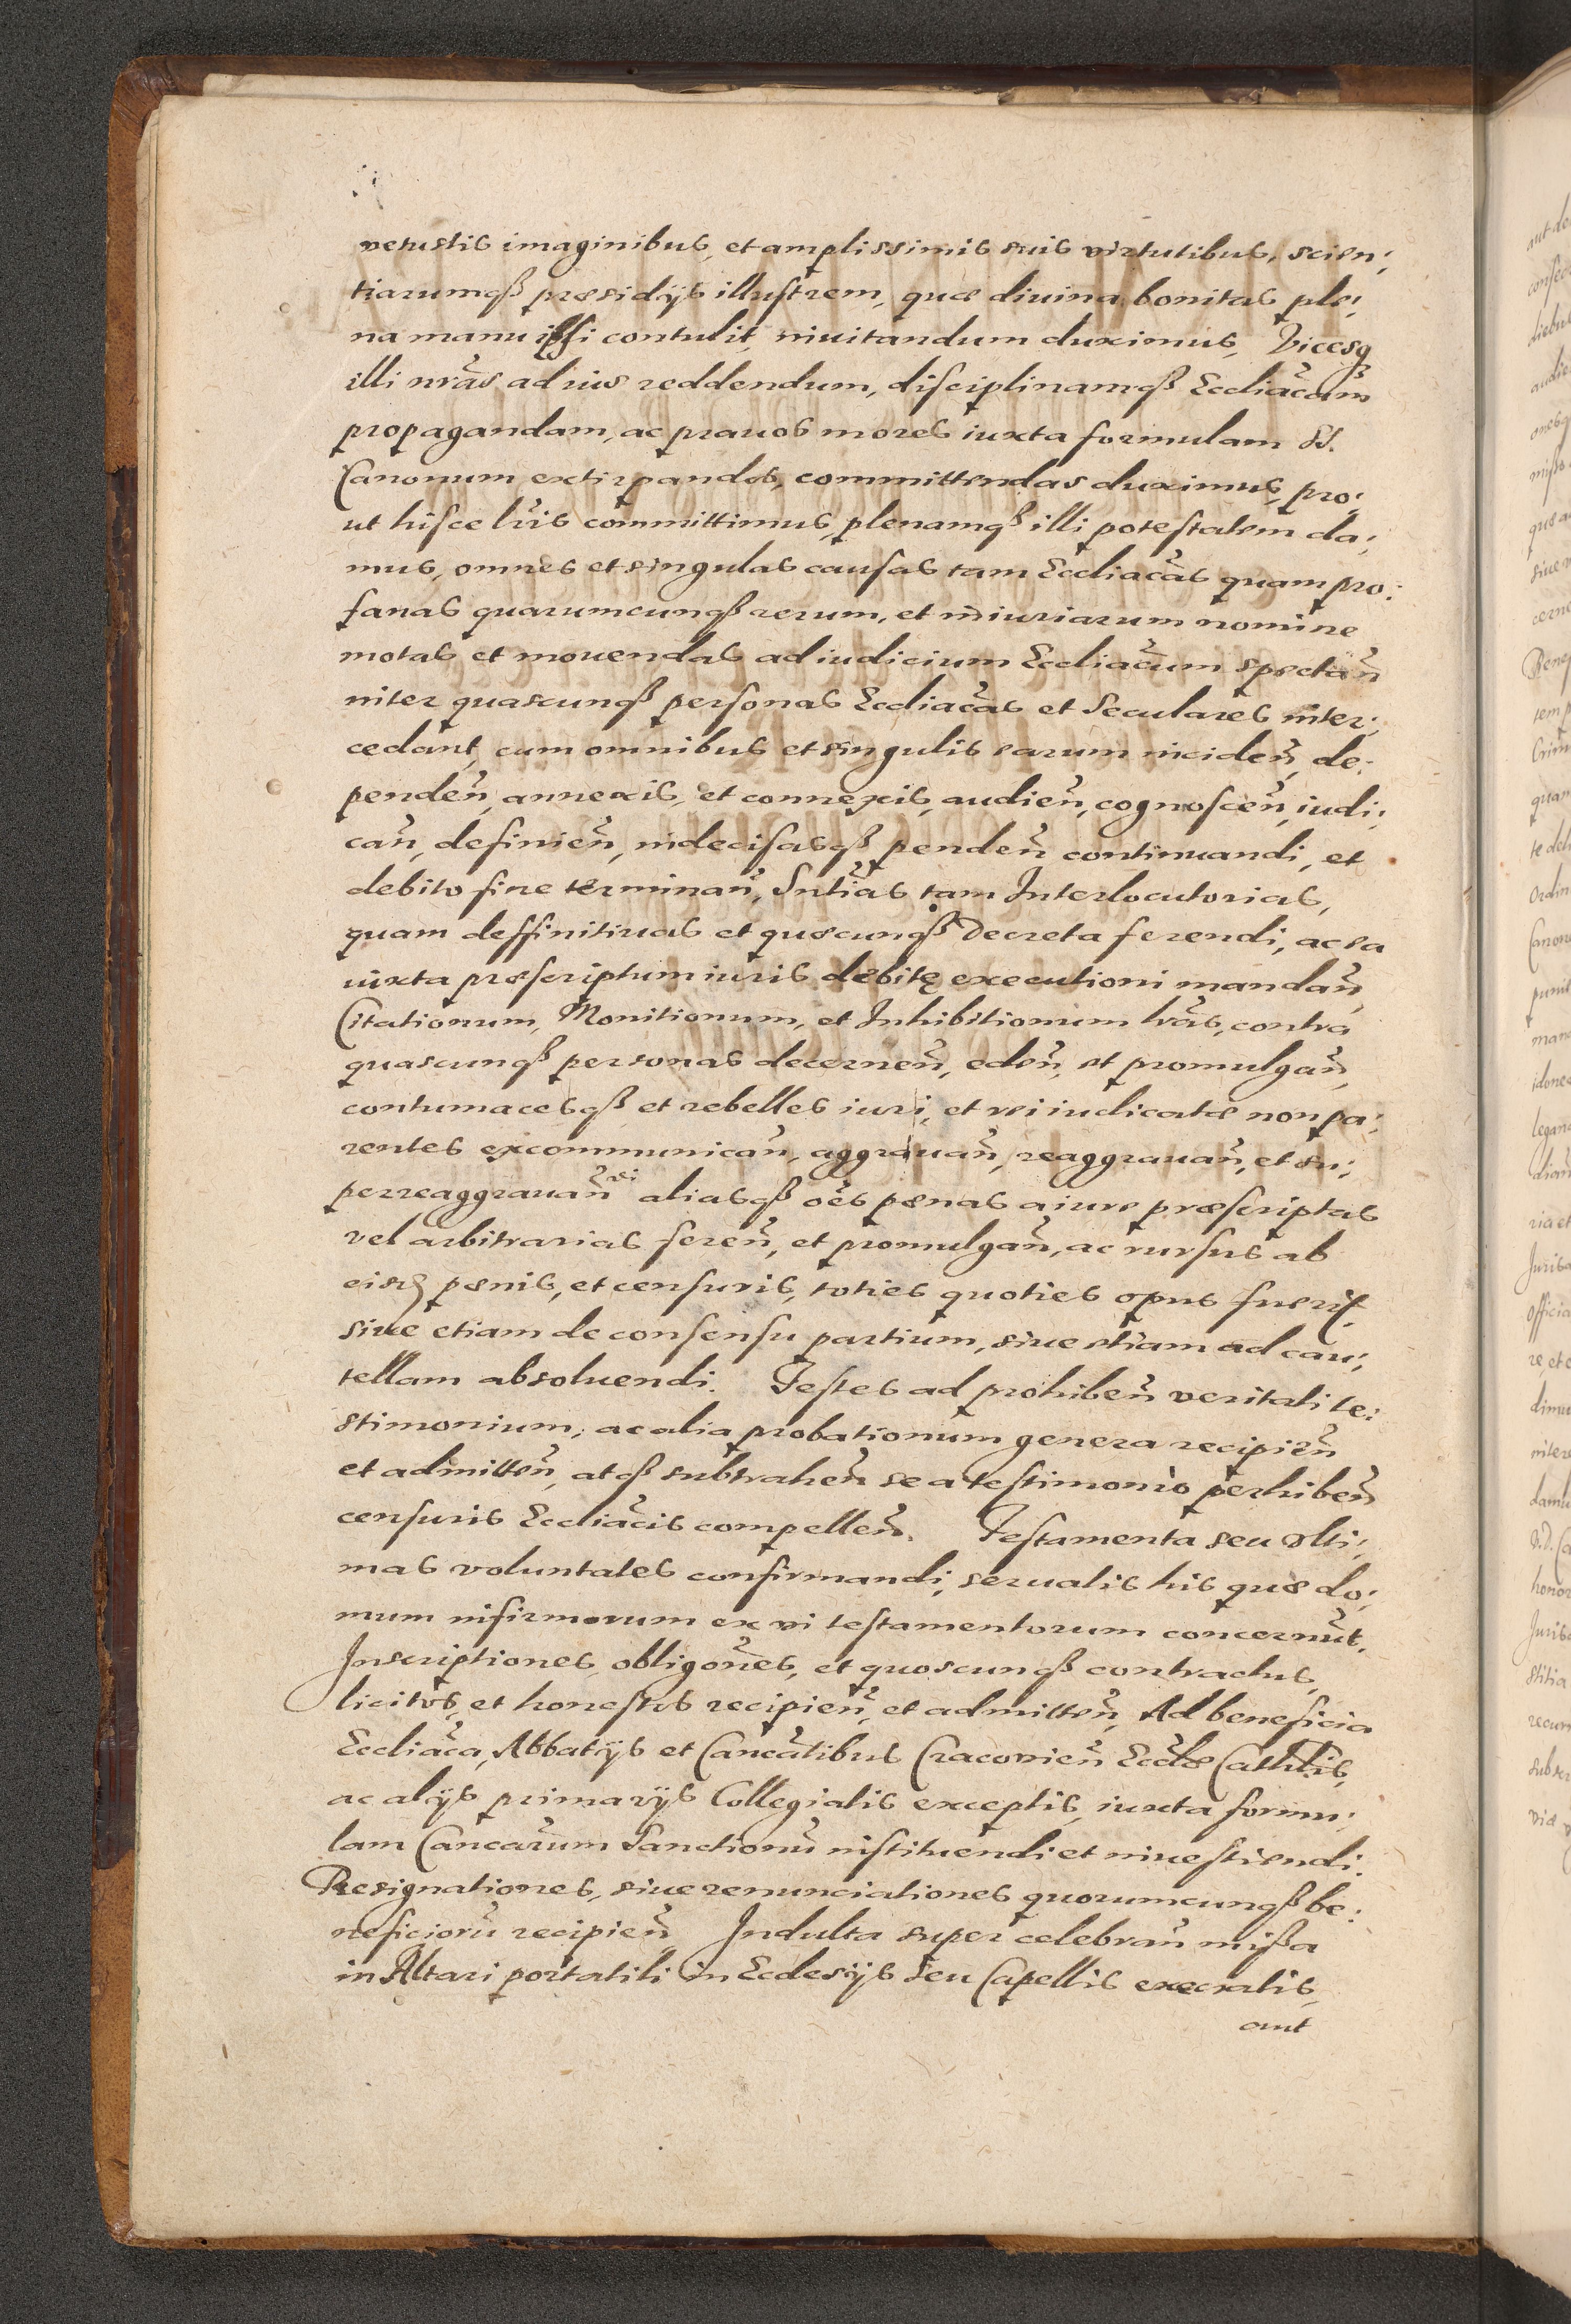 vetustis imaginibus, et amplissimis suis virtutibus, scien:
tiarumqß præsidijs illustrem, quæ diuina bonitas ple:
na manu ipsi contulit, inuitandum duximus, Vicesq
illi nrãs ad ius reddendum, disciplinamqß Eccliãcam
propagandam, ac prauos mores iuxta formulam SS.
Canonum extirpandos, committendas duximus, pro:
ut hisce lr̃is committimus, plenamqß illi potestatem da:
mus, omnes et singulas causas tam Eccliãcas quam pro:
fanas quarumcunqß rerum, et iniuriarum nomine
motas et mouendas ad iudicium Eccliãcum spectañ
inter quascunqß personas Eccliãcas et Seculares inter:
cedant, cum omnibus et singulis earum inciden̄, de:
penden̄, annexis, et connexis, audien̄, cognoscen̄, iudi:
can̄, definien̄, indecisasqß penden̄ continuandi, et
debito fine terminan̄, Sntĩas tam Interlocutorias,
quam deffinitiuas et quæcunqß Decreta ferendi, ac ea
iuxta præscriptum iuris debitę executioni mandan̄,
Citationum, Monitionum, et Inhibitionum lrãs, contra
quascunqß personas decernen̄, eden̄, et promulgan̄,
contumacesqß et rebelles iuri, et rei iudicatæ non pa:
rentes excommunican̄, aggrauan̄, reaggrauan̄, et su:
perreaggrauan̄ aliasqß oẽs pænas a iure præscriptas
vel arbitrarias feren̄, et promulgan̄, ac rursus ab
eisd pænis, et censuris, toties quoties opus fuerit
siue etiam de consensu partium, siue etiam ad cau:
tellam absoluendi. Testes ad prohiben̄ veritati te:
stimonium, ac alia probationum genera recipien̄
et admitten̄, atqß subtrahen̄ se a testimonio perhiben̄
censuris Eccliãcis compellen̄. Testamenta seu vlti:
mas voluntates confirmandi, seruatis his quæ do:
mum infirmorum ex vi testamentorum concernũt.
Inscriptiones, obligõnes, et quoscunqß contractus
licitos, et honestos recipien̄, et admitten̄, Ad beneficia
Eccliãca, Abbatijs et Cancãtibus Cracouien̄ Ecclæ Cathlis,
ac alijs primarijs Collegiatis exceptis, iuxta formu:
lam Cancarum Sanctionũ instituendi et inuestiendi.
Resignationes, siue renunciationes quorumcunqß be:
neficiorũ recipien̄ Indulta super celebran̄ mißa
in Altari portatili in Ecclesijs Seu Capellis execratis,
aut